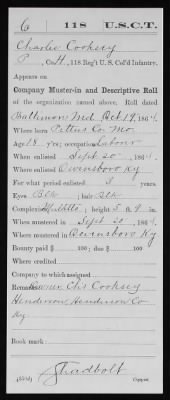 C 118 U.S.C.T.
Charlie Cooksey
P, Co. H, 118 Reg't U. S. Col'd Infantry.
Appears on
Company Muster-in and Descriptive Roll
of the organization named above. Roll dated
Baltimore, Md. Oct. 19, 1864.
Where born Pettus Co. Mo.
Age 18 y'rs; occupation Labour
When enlisted Sept 20, 1864.
Where enlisted Owensboro Ky
For what period enlisted 3 years.
Eyes Blk; hair Blk
Complexion Mulatto; height 5 ft. 9 in.
When mustered in Sept 20, 1864.
Where mustered in Owensboro Ky
Bounty paid $ 100; due $ 100
Where credited
Company to which assigned
Remarks: Owner, Chs Cooksey
Henderson, Henderson Co
Ky.
Book mark:
Shadbolt
Copyist.